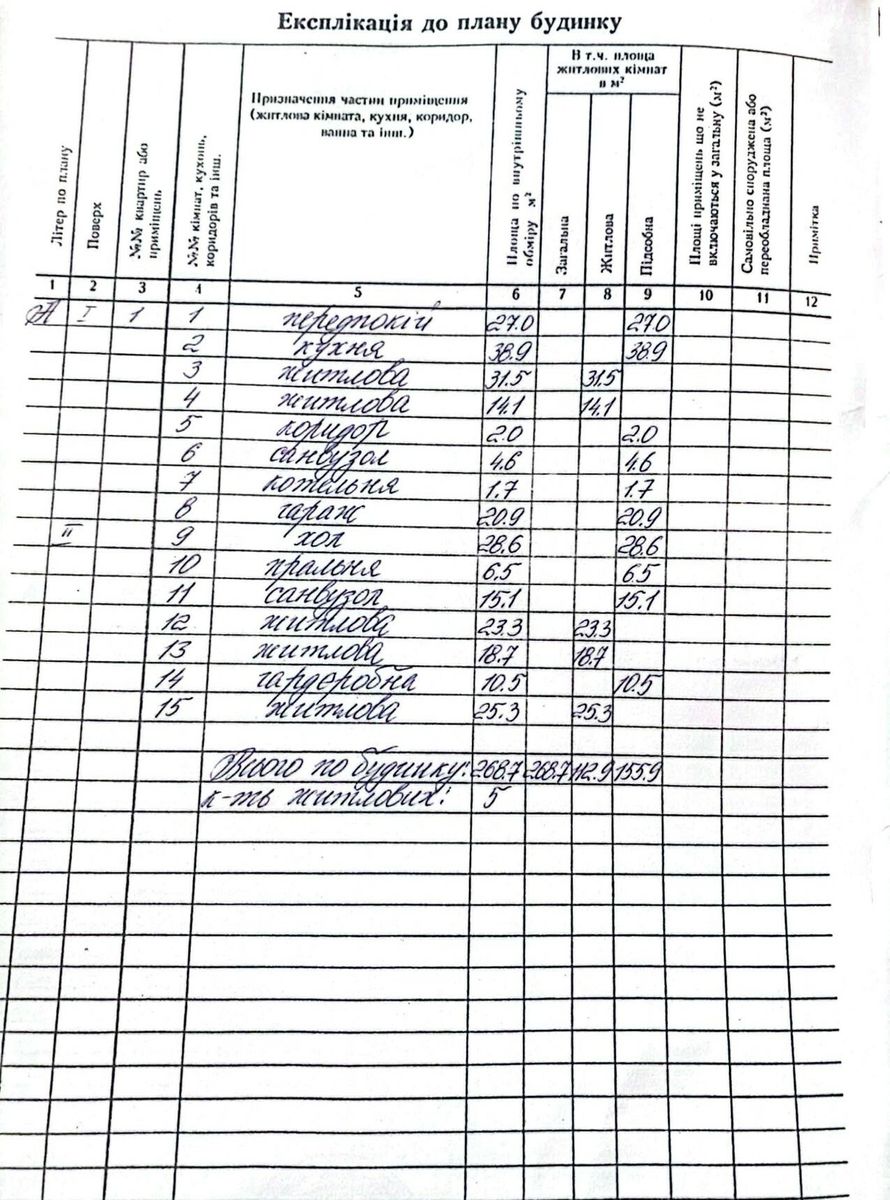 Експлікація до плану будинку
Літер по плану
Поверх
№№ квартир або приміщень
№№ кімнат, кухонь, коридорів та інш.
Призначення частин приміщення
(житлова кімната, кухня, коридор,
ванна та інш.)
Площа по внутрішньому обміру м²
В т.ч. площа
житлових кімнат
в м²
Загальна
Житлова
Підсобна
Площі приміщень що не включаються у загальну (м²)
Самовільно споруджена або переобладнана площа (м²)
Примітка
1 2 3 4 5 6 7 8 9 10 11 12
А I 1 1 передпокій 27.0 27.0
2 кухня 38.9 38.9
3 житлова 31.5 31.5
4 житлова 14.1 14.1
5 коридор 2.0 2.0
6 санвузол 4.6 4.6
7 котельня 1.7 1.7
8 гараж 20.9 20.9
II 9 хол 28.6 28.6
10 пральня 6.5 6.5
11 санвузол 15.1 15.1
12 житлова 23.3 23.3
13 житлова 18.7 18.7
14 гардеробна 10.5 10.5
15 житлова 25.3 25.3
Всього по будинку: 268.7 268.7 112.9 155.9
к-ть житлових: 5